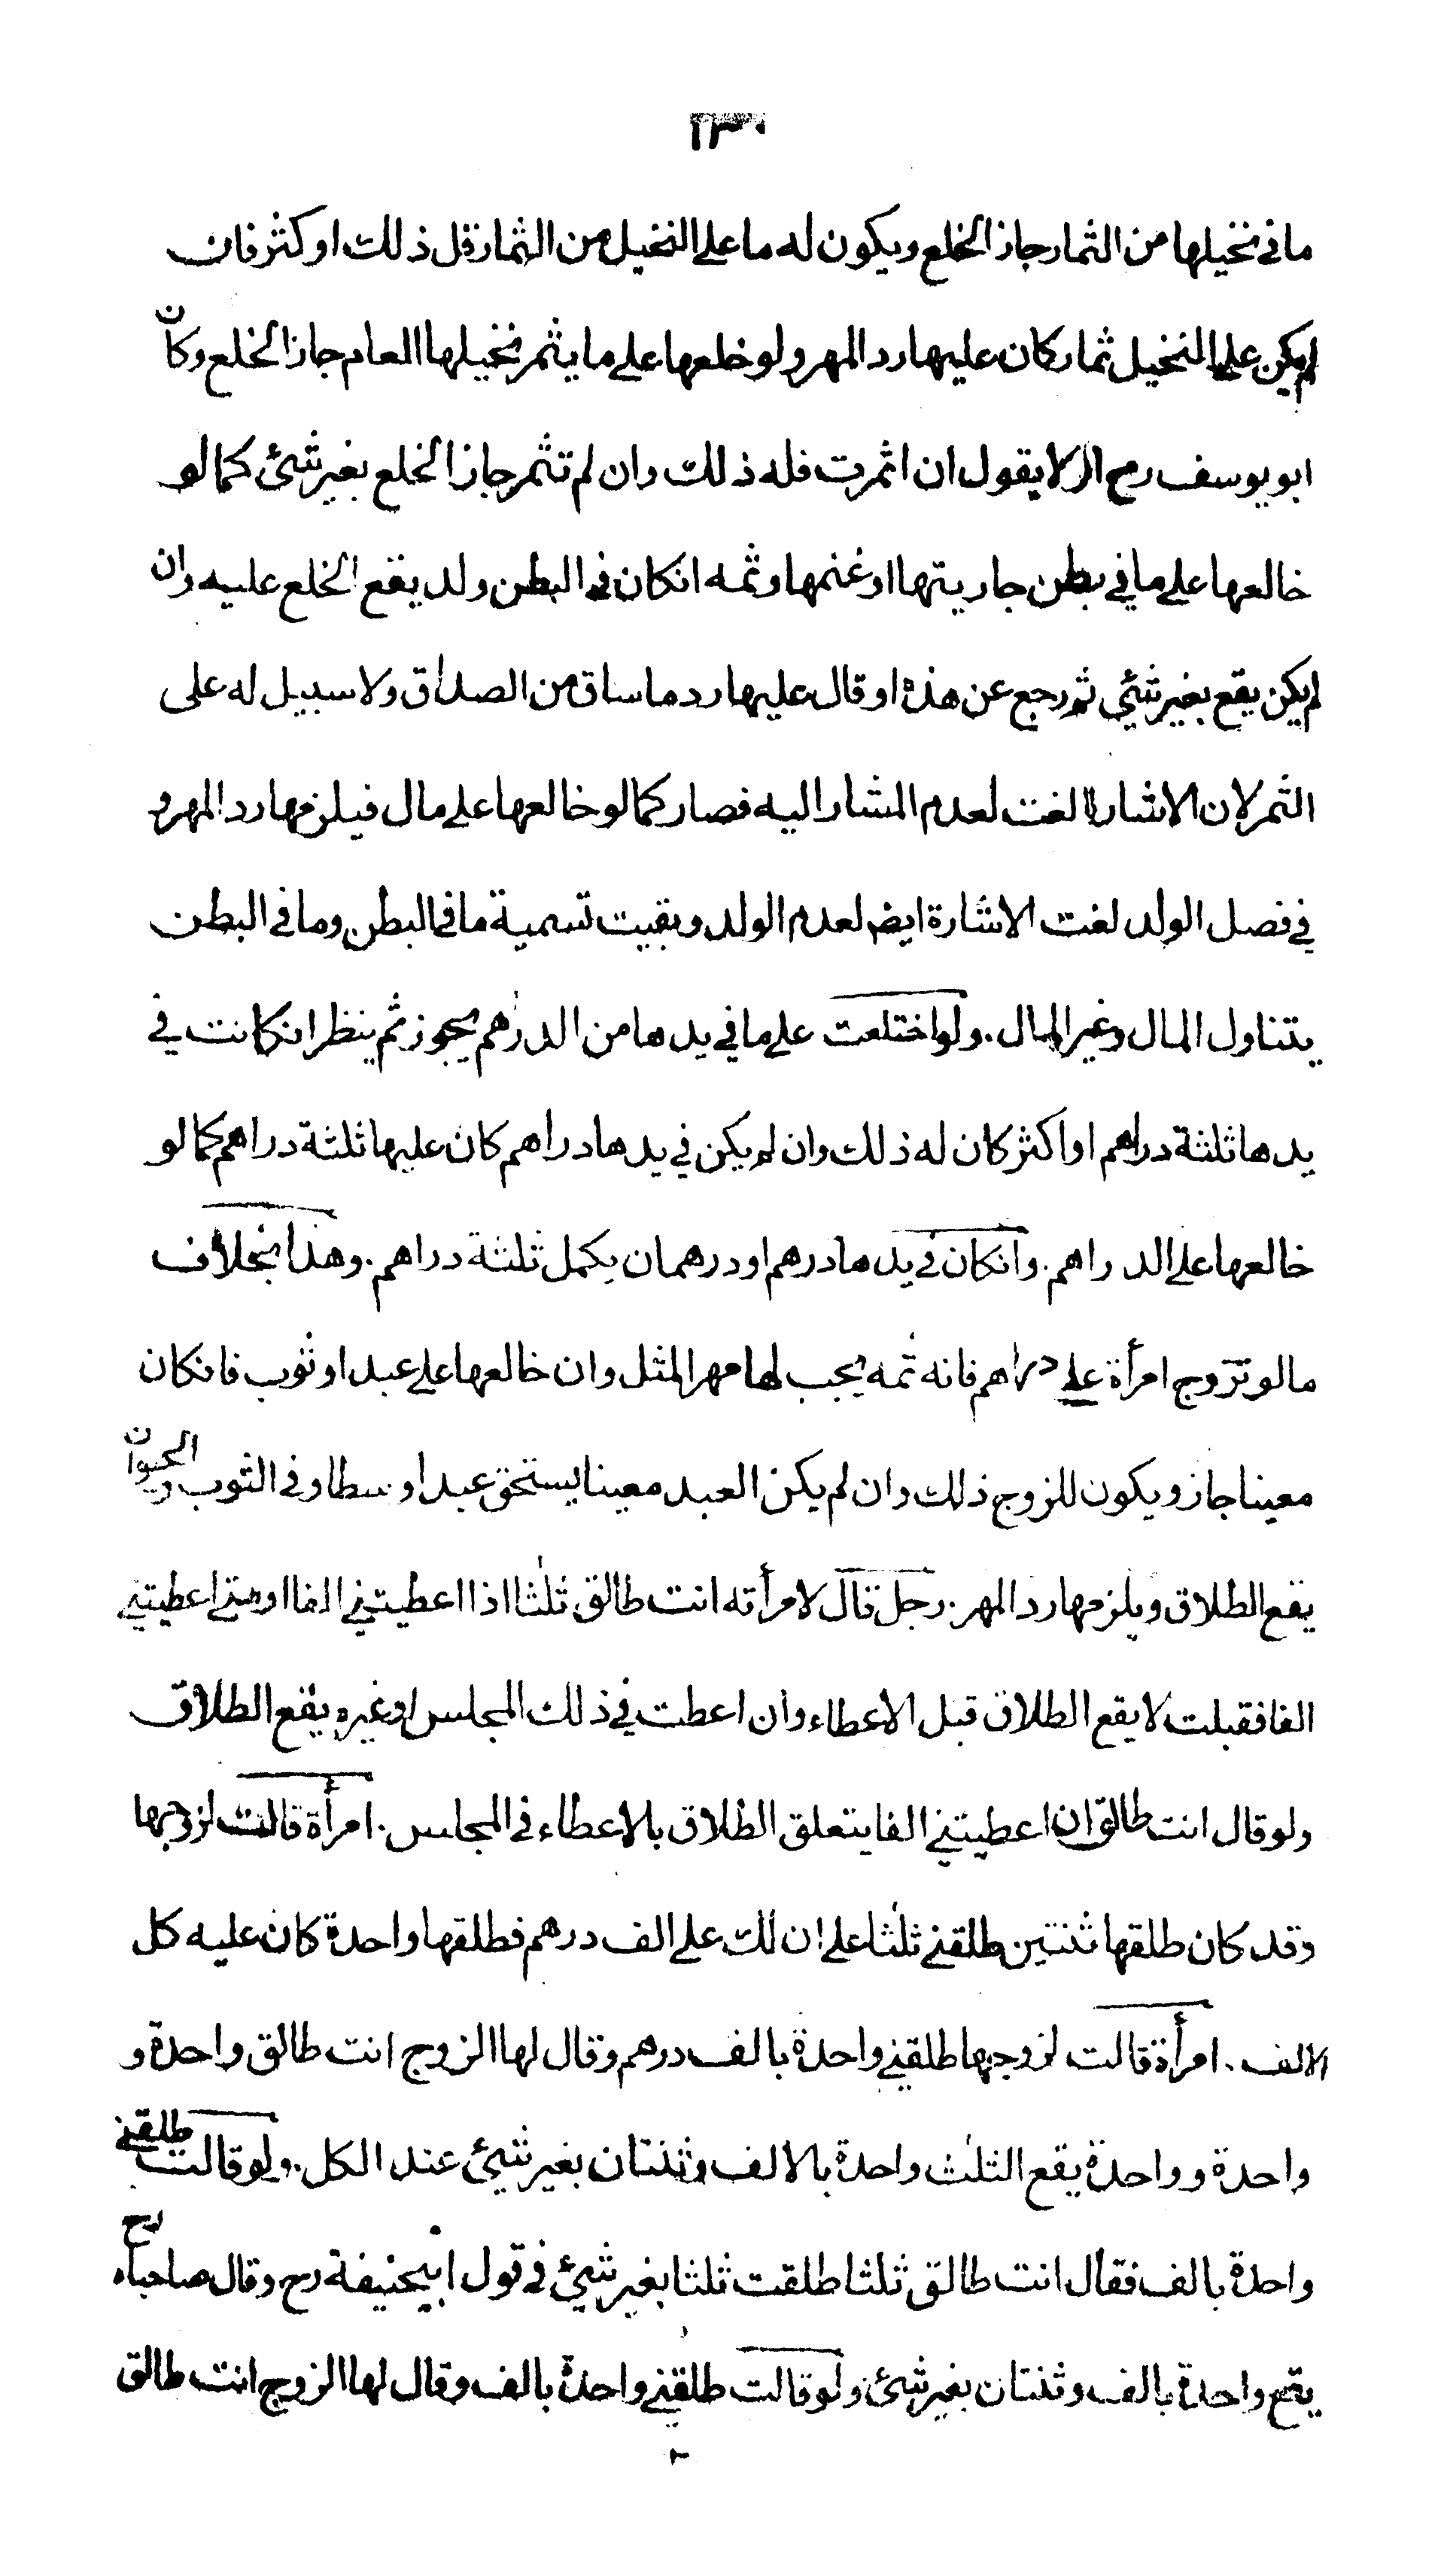 ١٣٠
ما في نخيلها من الثمار جاز الخلع ويكون له ما على النخيل من الثمار قل ذلك او كثر فان
لم يكن على النخيل ثمار كان عليها رد المهر ولو خلعها على ما يثمر نخيلها العام جاز الخلع وكان
ابو يوسف رح اولا يقول ان اثمرت فله ذلك وان لم تثمر جاز الخلع بغير شئ كما لو
خالعها على ما في بطن جاريتها او غنمها وثمه انكان في البطن ولد يقع الخلع عليه وان
لم يكن يقع بغير شئي ثم رجع عن هذه او قال عليها رد ما ساق من الصداق ولا سبيل له على
الثمر لان الاشارة لغت لعدم المشار اليه فصار كما لو خالعها على مال فيلزمها رد المهر و
في فصل الولد لغت الاشارة ايض لعدم الولد وبقيت تسمية ما في البطن وما في البطن
يتناول المال وغير المال . ولو اختلعت على ما في يدها من الدرهم يجوز ثم ينظر انكانت في
يدها ثلثة دراهم او اكثر كان له ذلك وان لم يكن في يدها دراهم كان عليها ثلثة دراهم كما لو
خالعها على الدراهم . وانكان في يدها درهم او درهمان يكمل ثلثة دراهم . وهذا بخلاف
ما لو تزوج امرأة على دراهم فانه ثمه يجب لها مهر المثل وان خالعها على عبد او ثوب فانكان
معينا جاز ويكون للزوج ذلك وان لم يكن العبد معينا يستحق عبدا وسطا وفي الثوب والحيوان
يقع الطلاق ويلزمها رد المهر . رجل قال لامرأته انت طالق ثلثا اذا اعطيتني الفا او متى اعطيتني
الفا فقبلت لا يقع الطلاق قبل الاعطاء وان اعطت في ذلك المجلس او غيره يقع الطلاق
ولو قال انت طالق ان اعطيتني الفا يتعلق الطلاق بالاعطاء في المجلس . امرأة قالت لزوجها
وقد كان طلقها ثنتين طلقني ثلثا على ان لك على الف درهم فطلقها واحدة كان عليه كل
الالف . امرأة قالت لزوجها طلقني واحدة بالف درهم وقال لها الزوج انت طالق واحدة و
واحدة وواحدة يقع الثلث واحدة بالالف وثنتان بغير شيئ عند الكل . ولو قالت طلقني
واحدة بالف فقال انت طالق ثلثا طلقت ثلثا بغير شيئ في قول ابيحنيفة رح وقال صاحباه رح
يقع واحدة بالف وثنتان بغير شئ ولو قالت طلقني واحدة بالف وقال لها الزوج انت طالق